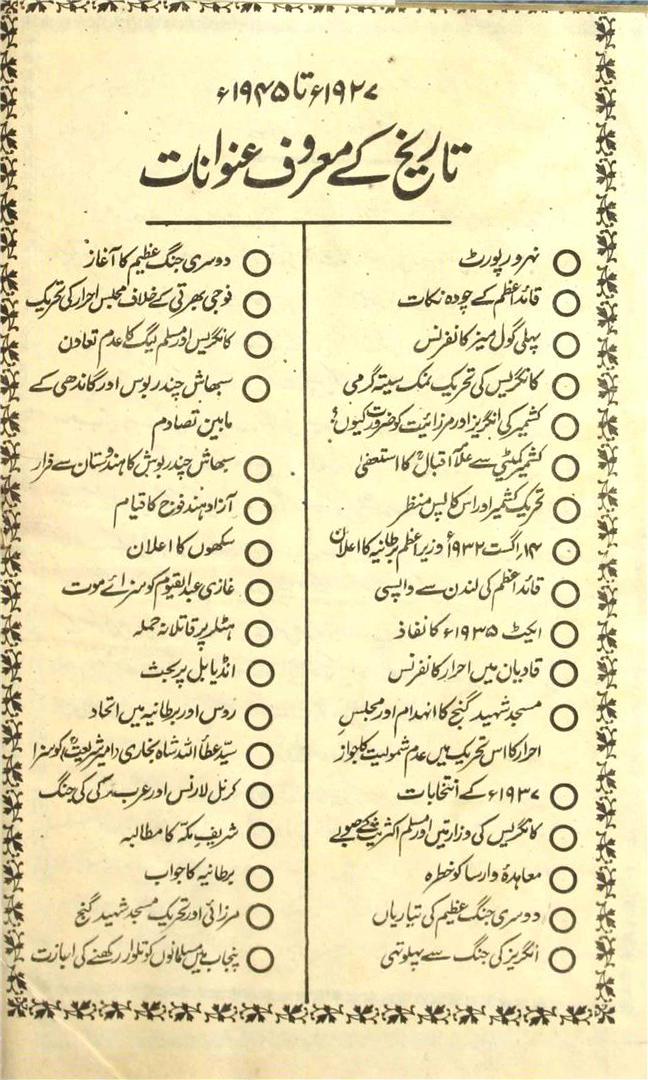 ۱۹۲۷ء تا ۱۹۴۵ء
تاریخ کے معروف عنوانات
نہرو رپورٹ
قائد اعظم کے چودہ نکات
پہلی گول میز کانفرنس
کانگریس کی تحریک نمک ستیہ گرمی
کشمیر کی انگریز اور مرزائیت کو ضرورت کیوں؟
کشمیر کمیٹی سے علامہ اقبالؒ کا استعفیٰ
تحریک کشمیر اور اس کا پس منظر
۱۴ اگست ۱۹۳۲ء وزیر اعظم برطانیہ کا اعلان
قائد اعظم کی لندن سے واپسی
ایکٹ ۱۹۳۵ء کا نفاذ
قادیان میں احرار کانفرنس
مسجد شہید گنج کا انہدام اور مجلسِ
احرار کا اس تحریک میں عدم شمولیت کا جواز
۱۹۳۷ء کے انتخابات
کانگریس کی وزارتیں اور مسلم اکثریت کے صوبے
معاہدۂ وارسا کو خطرہ
دوسری جنگ عظیم کی تیاریاں
انگریز کی جنگ سے پہلو تہی
دوسری جنگ عظیم کا آغاز
فوجی بھرتی کے خلاف مجلس احرار کی تحریک
کانگریس اور مسلم لیگ کا عدم تعاون
سبھاش چندر بوس اور گاندھی کے
مابین تصادم
سبھاش چندر بوش کا ہندوستان سے فرار
آزاد ہند فوج کا قیام
سکھوں کا اعلان
غازی عبد القیوم کو سزائے موت
ہٹلر پر قاتلانہ حملہ
انڈیا بل پر بحث
روس اور برطانیہ میں اتحاد
سیّد عطأ اللہ شاہ بخاری (امیر شریعتؒ) کو سزا
کرنل لارنس اور عرب کی جنگ
شریفِ مکہ کا مطالبہ
برطانیہ کا جواب
مرزائی اور تحریک مسجد شہید گنج
پنجاب میں مسلمانوں کو تلوار رکھنے کی اجازت